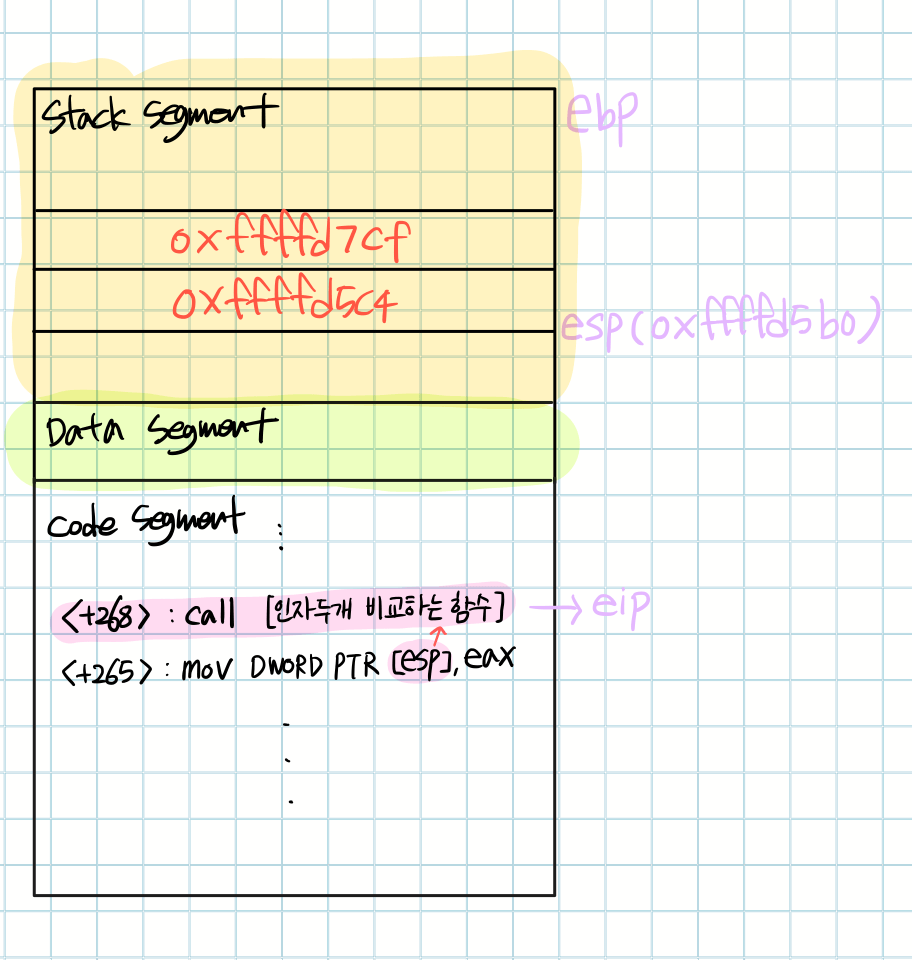 Stack Segment
ebp
0xffffd7cf
0xffffd5c4
esp(0xffffd5b0)
Data Segment
Code Segment :
<+268> : call [인자두개 비교하는 함수] → eip
<+265> : mov DWORD PTR [esp], eax